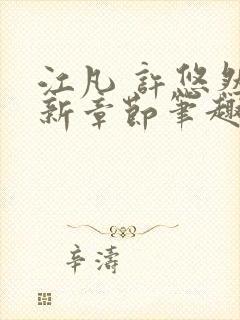 江凡 許悠然
新章節筆趣
辛濤